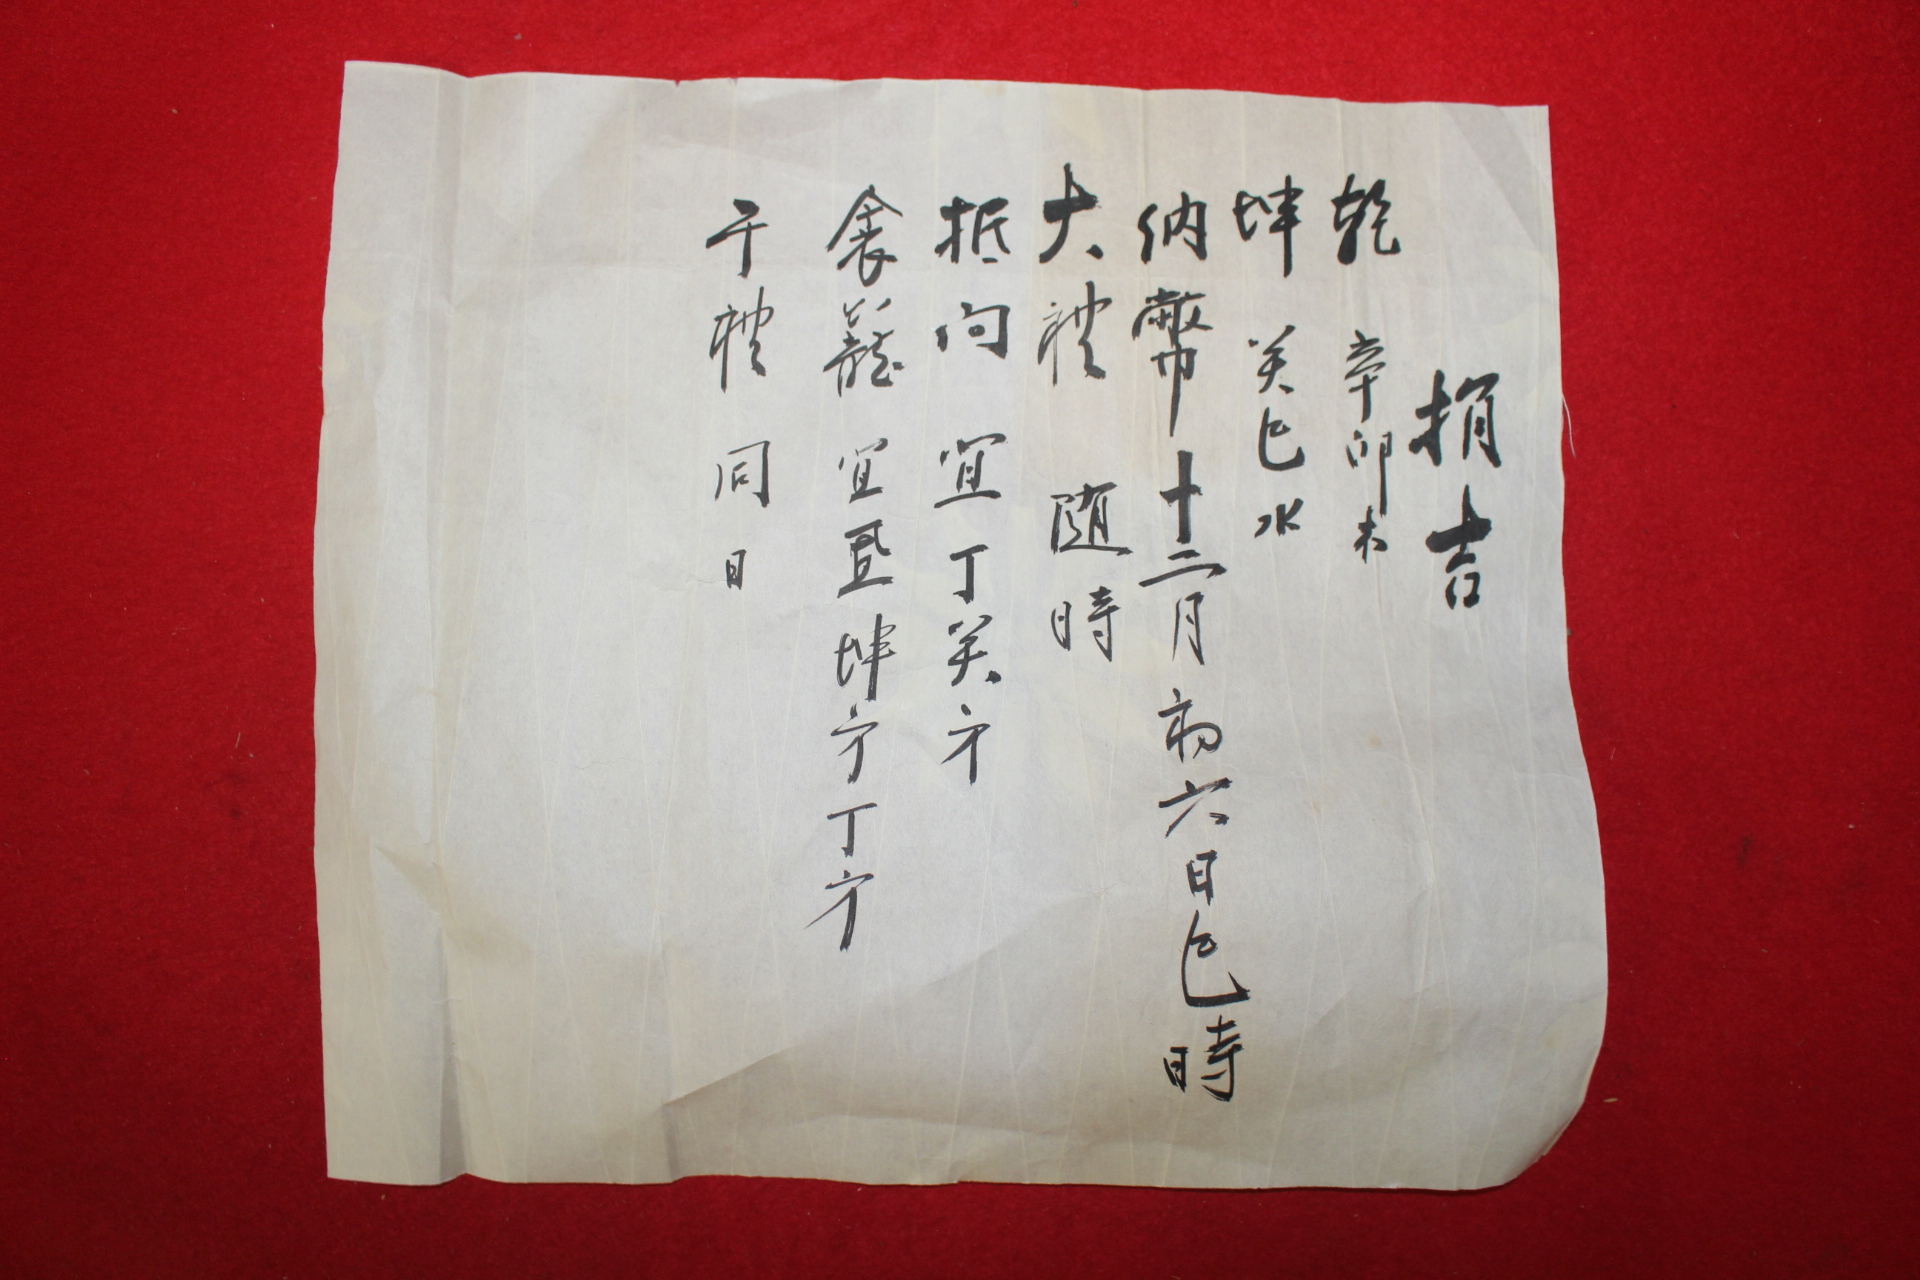 捐吉
乾 辛卯木
坤 癸巳水
納幣 十二月初六日巳時
大禮 隨時
抵向 宜丁癸方
衾籠 宜置坤方丁方
于禮 同日